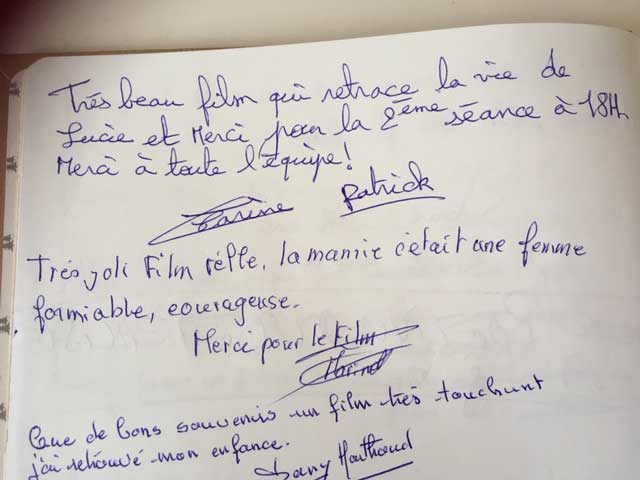 Très beau film qui retrace la vie de
Lucie et Merci pour la 2ème séance à 18H.
Merci à toute l'équipe!
Karine Patrick
Très joli Film réelle, la mamie c'était une femme
formiable, courageuse.
Merci pour le Film
Que de bons souvenirs un film très touchant
j'ai retrouvé mon enfance.
Dany